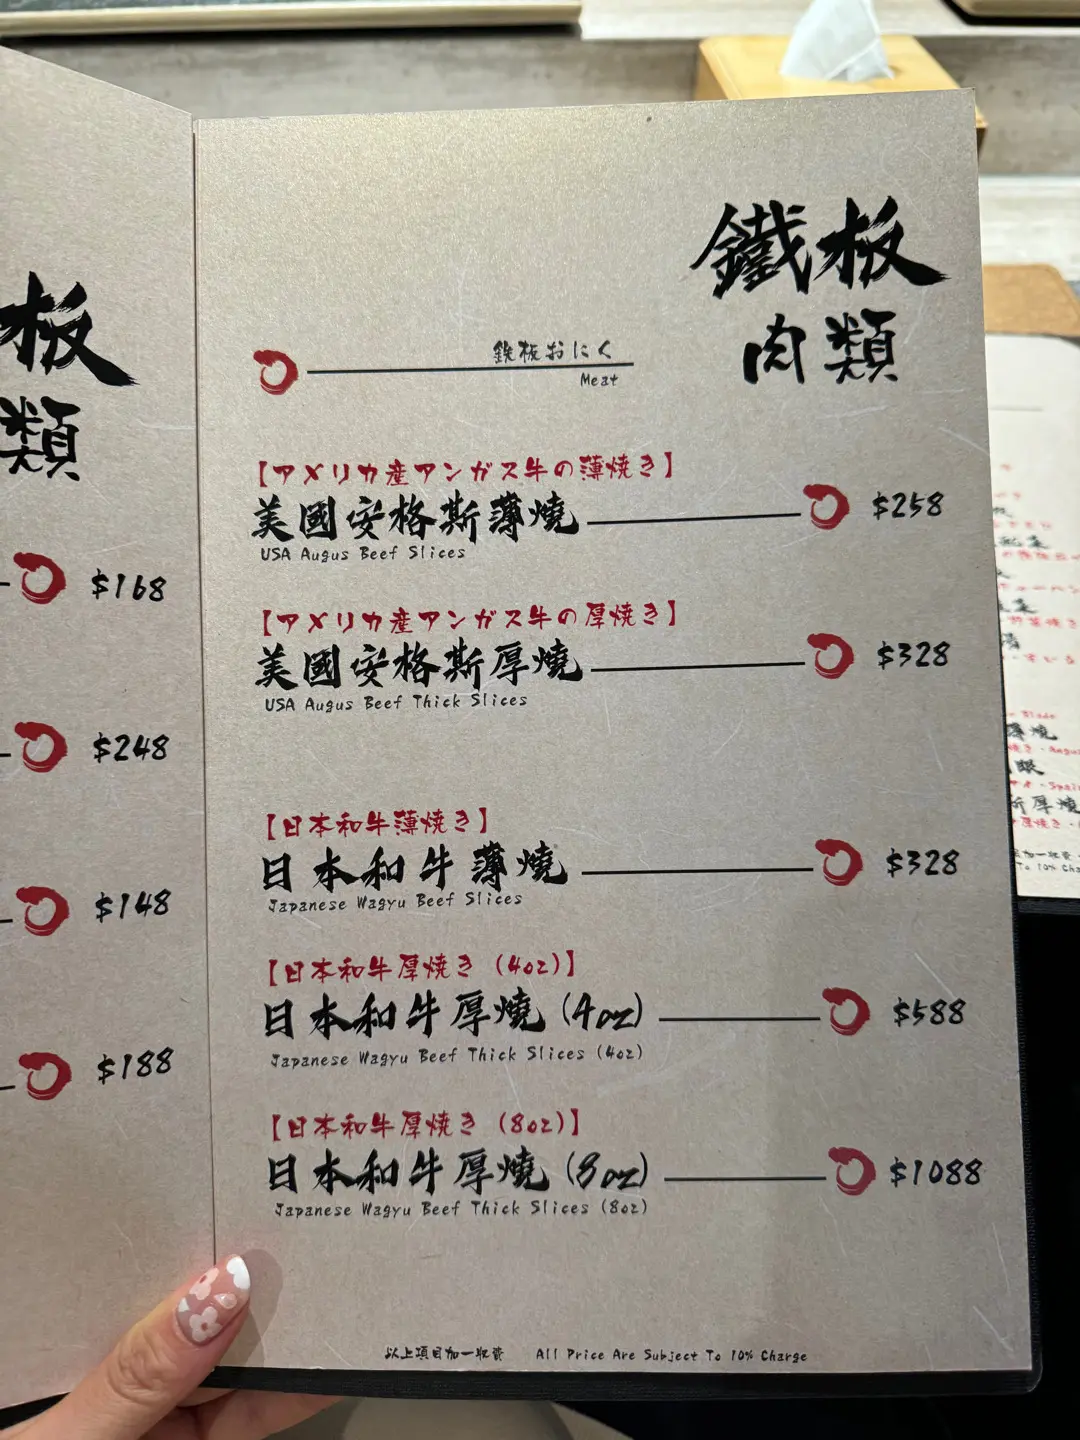 板
類
$168
$248
$148
$188
鐵板
肉類
鉄板おにく
Meat
【アメリカ産アンガス牛の薄焼き】
美國安格斯薄燒 $258
USA Augus Beef Slices
【アメリカ産アンガス牛の厚焼き】
美國安格斯厚燒 $328
USA Augus Beef Thick Slices
【日本和牛薄焼き】
日本和牛薄燒 $328
Japanese Wagyu Beef Slices
【日本和牛厚焼き (4oz)】
日本和牛厚燒 (4oz) $588
Japanese Wagyu Beef Thick Slices (4oz)
【日本和牛厚焼き (8oz)】
日本和牛厚燒 (8oz) $1088
Japanese Wagyu Beef Thick Slices (8oz)
以上項目加一收費 All Price Are Subject To 10% Charge
薄燒
眼
斯厚燒